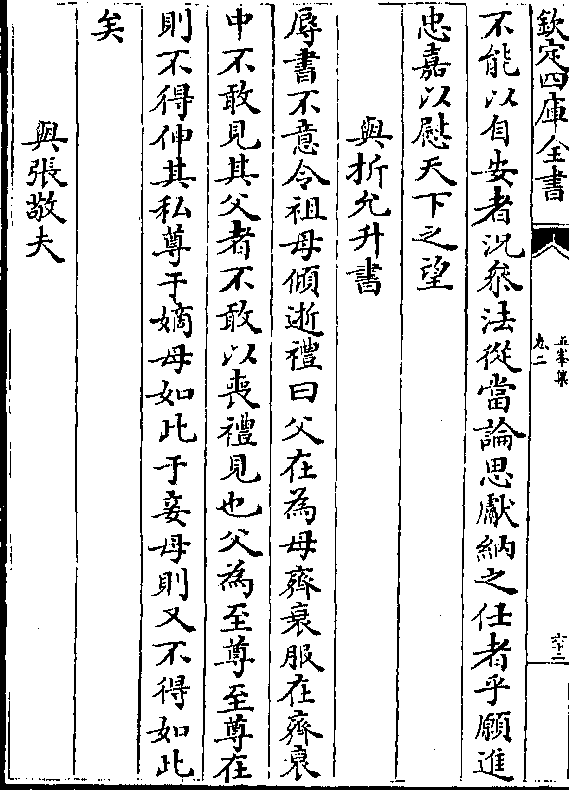 欽定四庫全書
五峯集
卷二
六十二
不能以自安者況叅法從當論思獻納之任者乎願進
忠嘉以慰天下之望
與折允升書
辱書不意令祖母傾逝禮曰父在為母齊衰服在齊衰
中不敢見其父者不敢以喪禮見也父為至尊至尊在
則不得伸其私尊于嫡母如此于妾母則又不得如此
矣
與張敬夫